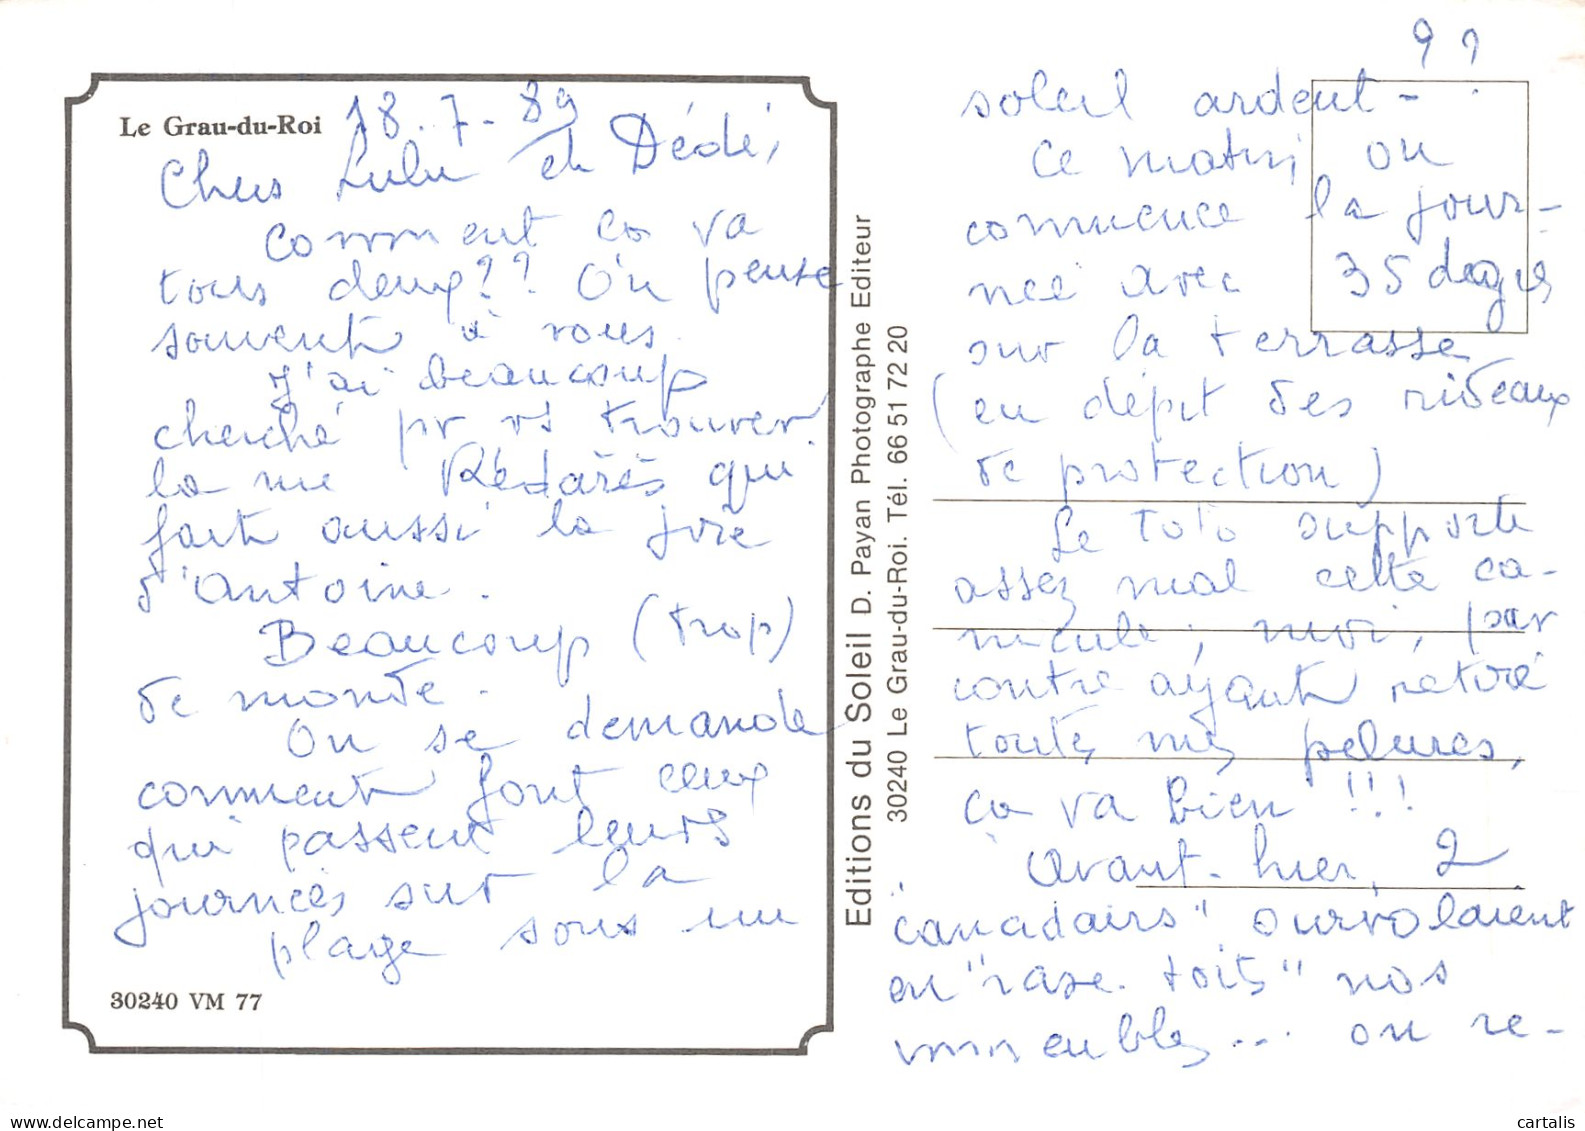 Le Grau-du-Roi
18.7-89
Chers Lulu et Dédé,
Comment ca va
tous deux?? On pense
souvent à vous.
J'ai beaucoup
cherché pr vs trouver
la me Rédarès qui
fait aussi la joie
d'Antoine.
Beaucoup (trop)
de monde.
On se demande
comment font ceux
qui passent leurs
journées sur la
plage sous un
30240 VM 77
Editions du Soleil D. Payan Photographe Editeur
30240 Le Grau-du-Roi. Tél. 66 51 72 20
??
soleil ardent-
Ce matin, on
commence la jour-
née avec 35 degrés
sur la terrasse
(en dépit des rideaux
de protection)
Le Toto supporte
assez mal cette ca-
nicule; moi, par
contre ayant retiré
toutes mes pelures,
ca va bien !!!
Avant-hier, 2
"canadairs" survolaient
en "rase-toits" nos
immeubles... on re-
delcampe.net
cartalis